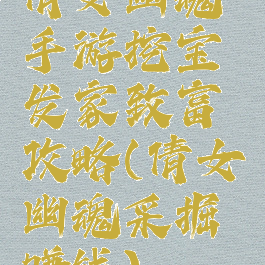 倩女幽魂
手游挖宝
发家致富
攻略(倩女
幽魂采掘
赚钱)